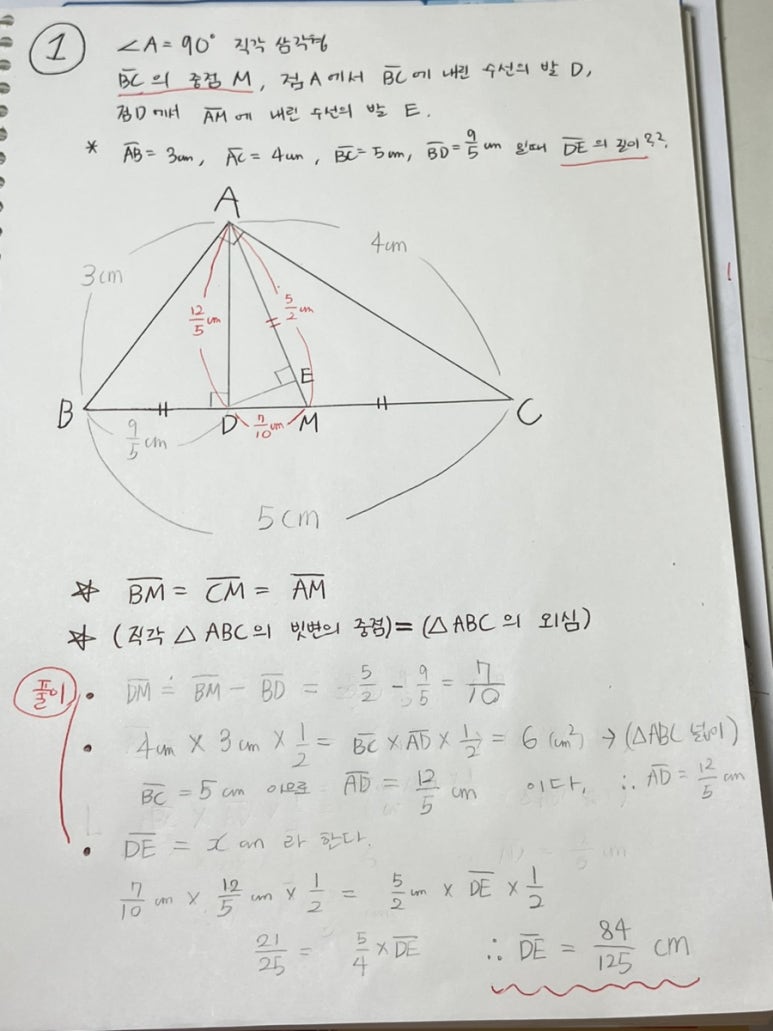 ① ∠A = 90° 직각 삼각형
BC의 중점 M, 점A에서 BC에 내린 수선의 발 D,
점D에서 AM에 내린 수선의 발 E.
* AB = 3cm, AC = 4cm, BC = 5cm, BD = 9/5 cm 일때 DE의 길이??
A
3cm
4cm
12/5 cm
5/2 cm
E
B
D
M
C
9/5 cm
7/10 cm
5cm
☆ BM = CM = AM
☆ (직각 △ABC의 빗변의 중점) = (△ABC의 외심)
풀이
• DM = BM - BD = 5/2 - 9/5 = 7/10
• 4cm × 3cm × 1/2 = BC × AD × 1/2 = 6 (cm²) → (△ABC 넓이)
BC = 5cm 이므로 AD = 12/5 cm 이다. ∴ AD = 12/5 cm
• DE = x cm 라 한다.
7/10 cm × 12/5 cm × 1/2 = 5/2 cm × DE × 1/2
21/25 = 5/4 × DE ∴ DE = 84/125 cm